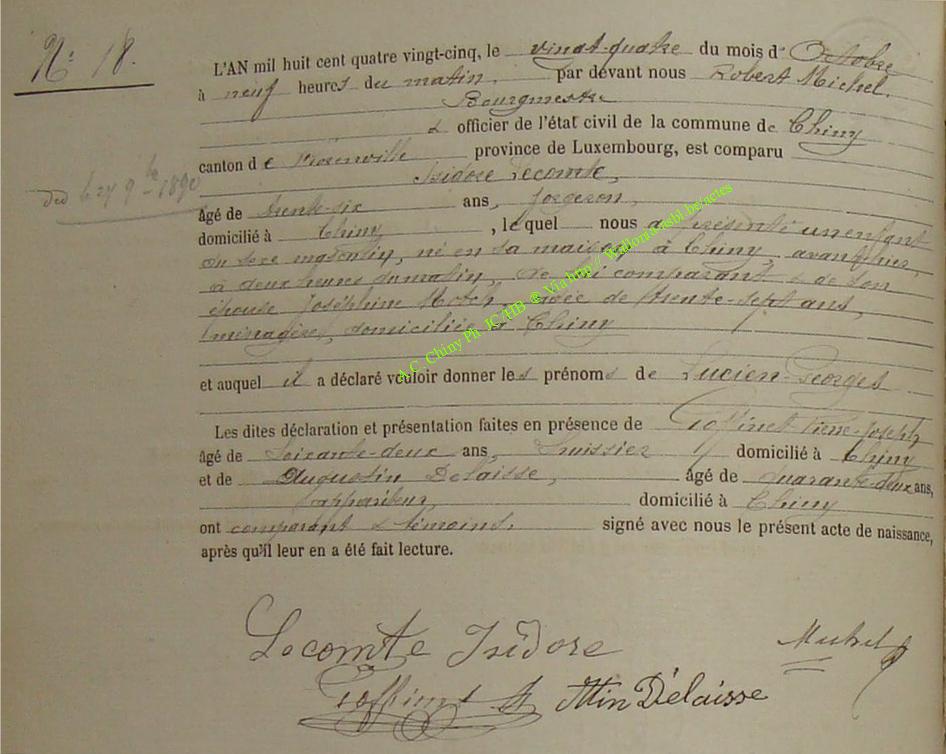 N° 18.
L'AN mil huit cent quatre vingt-cinq, le vingt-quatre du mois d' Octobre
à neuf heures du matin. par devant nous Robert Michel.
Bourgmestre
& officier de l'état civil de la commune de Chiny
canton de Florenville province de Luxembourg, est comparu
Isidore Lecomte,
ded le 27 9bre 1890
âgé de trente-six ans, forgeron,
domicilié à Chiny, lequel nous a présenté un enfant
du sexe masculin, né en sa maison à Chiny, avant hier,
à deux heures du matin, de lui comparant & de son
épouse Joséphine agée de trente-sept ans,
ménagère, domiciliée à Chiny
A.C. Chiny Ph. JC/HB ® Via http://Wallonia.asbl.be/actes
et auquel il a déclaré vouloir donner les prénoms de Lucien-Georges
Les dites déclaration et présentation faites en présence de Goffinet Pierre-Joseph
âgé de Soixante-deux ans, huissier domicilié à Chiny
et de Augustin Delaisse, âgé de quarante-deux ans,
appariteur, domicilié à Chiny
ont comparant & témoins. signé avec nous le présent acte de naissance,
après qu'il leur en a été fait lecture.
Lecomte Isidore
Michel
Goffinet Atin Delaisse